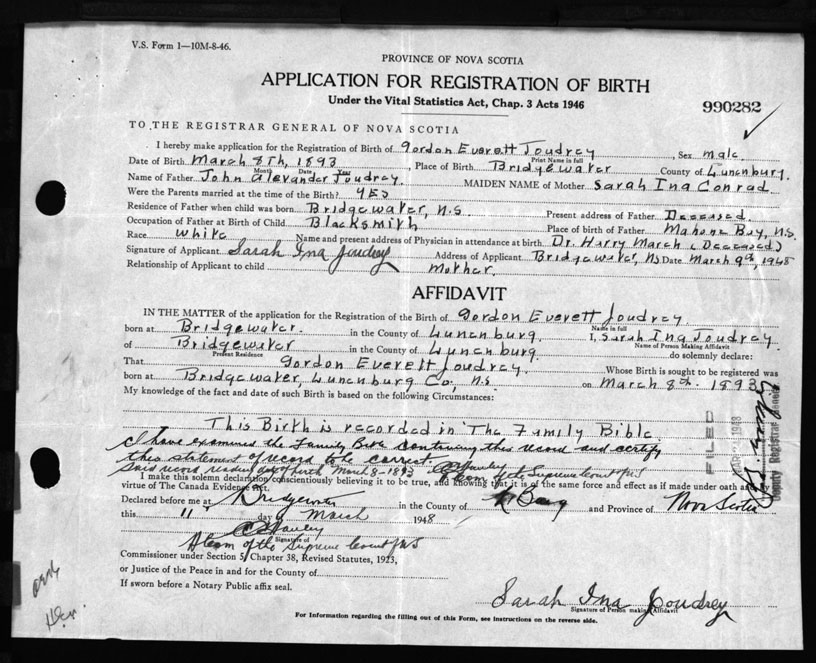 V.S. Form 1—10M-8-46.
PROVINCE OF NOVA SCOTIA
APPLICATION FOR REGISTRATION OF BIRTH
Under the Vital Statistics Act, Chap. 3 Acts 1946
990282
TO THE REGISTRAR GENERAL OF NOVA SCOTIA
I hereby make application for the Registration of Birth of Gordon Everett Joudrey, Sex male.
Print Name in full
Date of Birth March 8th, 1893 Place of Birth Bridgewater County of Lunenburg.
Month Date Year
Name of Father John Alexander Joudrey. MAIDEN NAME of Mother Sarah Ina Conrad
Were the Parents married at the time of the Birth? Yes
Residence of Father when child was born Bridgewater, N.S. Present address of Father Deceased.
Occupation of Father at Birth of Child Blacksmith Place of birth of Father Mahone Bay, N.S.
Race White Name and present address of Physician in attendance at birth Dr. Harry March (Deceased)
Signature of Applicant Sarah Ina Joudrey Address of Applicant Bridgewater, N.S. Date March 9th, 1948
Relationship of Applicant to child Mother.
AFFIDAVIT
IN THE MATTER of the application for the Registration of the Birth of Gordon Everett Joudrey.
Name in full
born at Bridgewater. in the County of Lunenburg. I, Sarah Ina Joudrey.
Name of Person Making Affidavit
of Bridgewater in the County of Lunenburg. do solemnly declare:
Present Residence
That Gordon Everett Joudrey. Whose Birth is sought to be registered was
born at Bridgewater, Lunenburg Co., N.S. on March 8th. 1893
My knowledge of the fact and date of such Birth is based on the following Circumstances:
This Birth is recorded in The Family Bible.
I have examined the Family Bible containing this record and certify
this statement of record to be correct
Said record reading day of birth March 8-1893
A Com of the Supreme Court of N.S
I make this solemn declaration conscientiously believing it to be true, and knowing that it is of the same force and effect as if made under oath and by
virtue of The Canada Evidence Act.
Declared before me at Bridgewater in the County of and Province of Nova Scotia
this 11 day of March 1948
Signature of
A Com of the Supreme Court of N.S
Commissioner under Section 5, Chapter 38, Revised Statutes, 1923,
or Justice of the Peace in and for the County of
If sworn before a Notary Public affix seal.
Sarah Ina Joudrey
Signature of Person making Affidavit
For Information regarding the filling out of this Form, see instructions on the reverse side.
FILED
1948
Deputy Registrar General